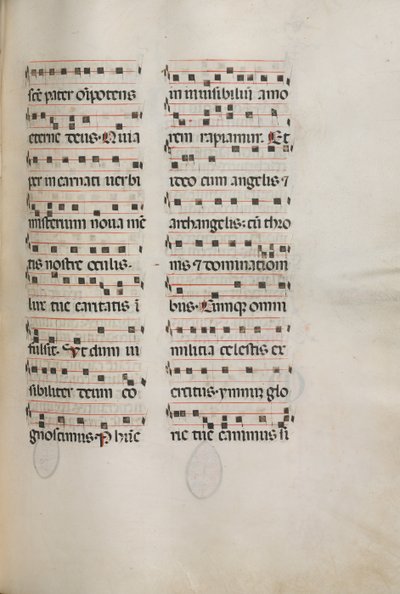 sc̄e pater om̄ipotens
eterne deus. Quia
per incarnati uerbi
misterium noua mē
tis nostre oculis.
lux tue caritatis ī
fulsit. Vt dum ui
sibiliter deum co
gnoscimus. P hūc
in inuisibiliū amo
rem rapiamur. Et
ideo cum angelis ⁊
archangelis: cū thro
nis ⁊ dominationi
bus. Cumque omni
militia celestis ex
ercitus. ymnum glo
rie tue canimus si